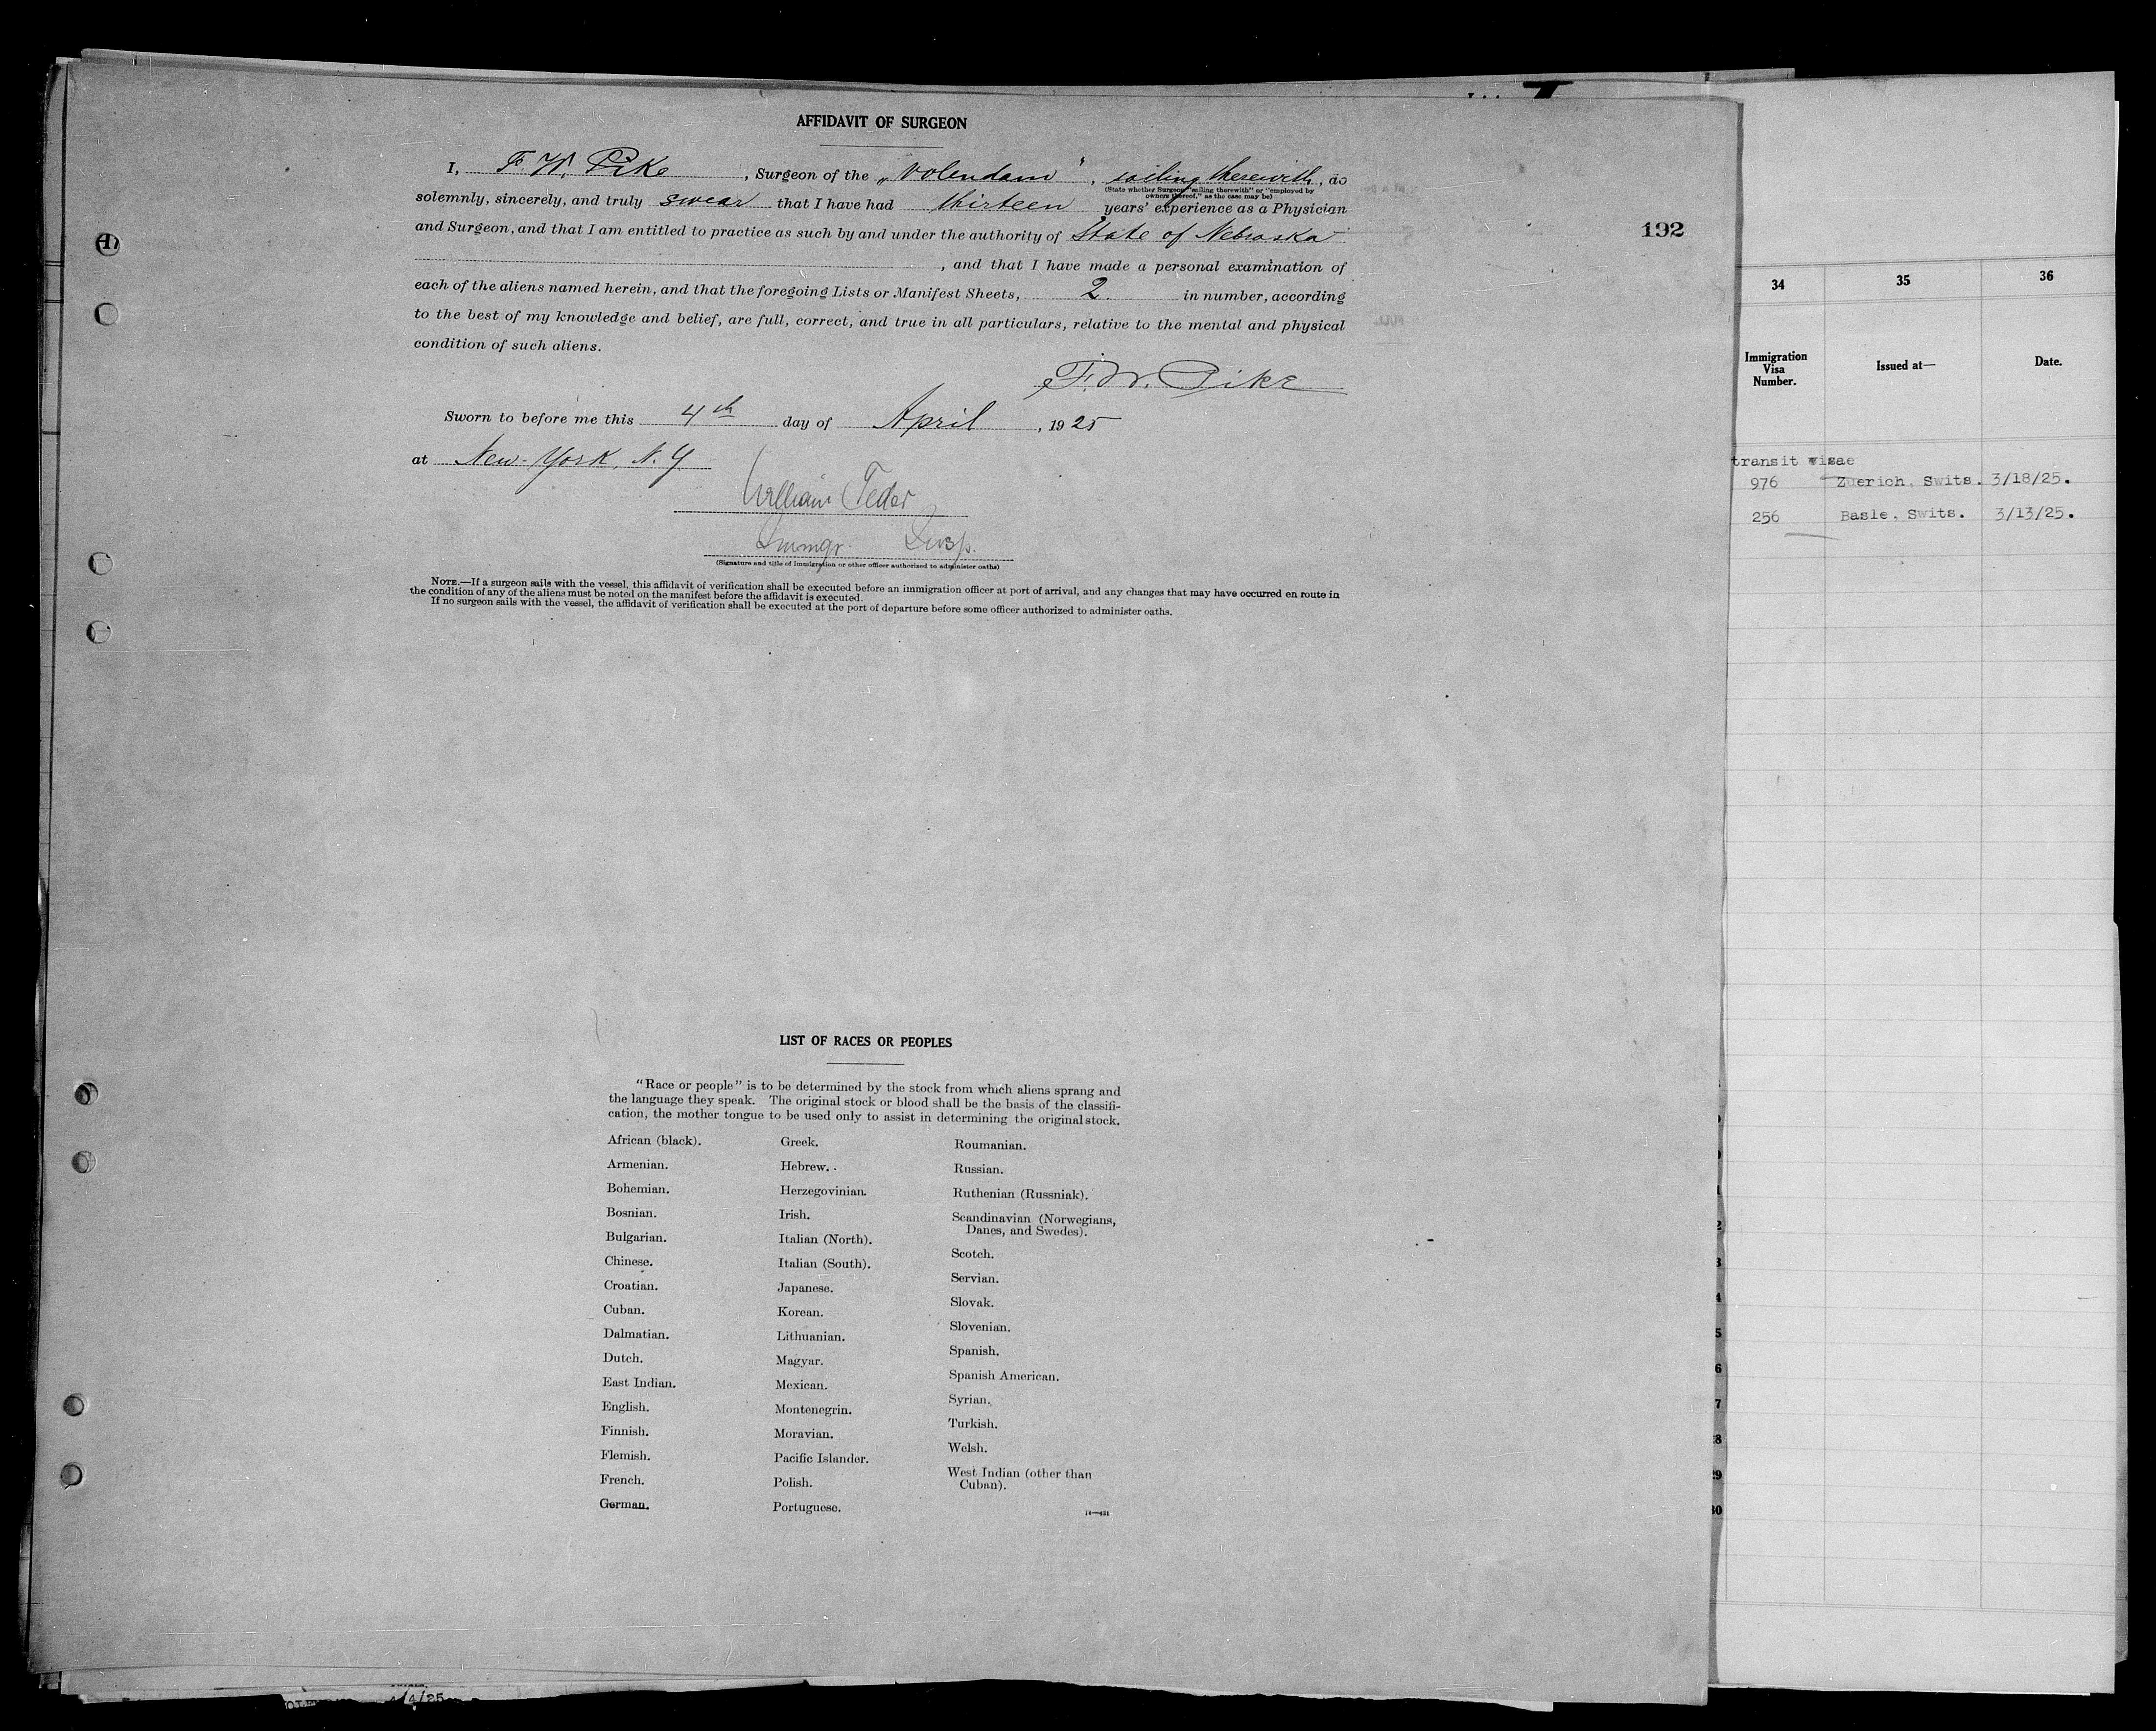 AFFIDAVIT OF SURGEON
I, F. W. Pike, Surgeon of the „Volendam", sailing therewith, do
(State whether Surgeon "sailing therewith" or "employed by
owners thereof," as the case may be)
solemnly, sincerely, and truly swear that I have had thirteen years' experience as a Physician
and Surgeon, and that I am entitled to practice as such by and under the authority of State of Nebraska
, and that I have made a personal examination of
each of the aliens named herein, and that the foregoing Lists or Manifest Sheets, 2. in number, according
to the best of my knowledge and belief, are full, correct, and true in all particulars, relative to the mental and physical
condition of such aliens.
F. W. Pike
Sworn to before me this 4th day of April, 1925
at New-York, N. Y.
William Feder
Immgr. Insp.
(Signature and title of immigration or other officer authorized to administer oaths)
NOTE.—If a surgeon sails with the vessel, this affidavit of verification shall be executed before an immigration officer at port of arrival, and any changes that may have occurred en route in
the condition of any of the aliens must be noted on the manifest before the affidavit is executed.
If no surgeon sails with the vessel, the affidavit of verification shall be executed at the port of departure before some officer authorized to administer oaths.
192
LIST OF RACES OR PEOPLES
"Race or people" is to be determined by the stock from which aliens sprang and
the language they speak. The original stock or blood shall be the basis of the classifi-
cation, the mother tongue to be used only to assist in determining the original stock.
African (black).
Armenian.
Bohemian.
Bosnian.
Bulgarian.
Chinese.
Croatian.
Cuban.
Dalmatian.
Dutch.
East Indian.
English.
Finnish.
Flemish.
French.
German.
Greek.
Hebrew.
Herzegovinian.
Irish.
Italian (North).
Italian (South).
Japanese.
Korean.
Lithuanian.
Magyar.
Mexican.
Montenegrin.
Moravian.
Pacific Islander.
Polish.
Portuguese.
Roumanian.
Russian.
Ruthenian (Russniak).
Scandinavian (Norwegians,
Danes, and Swedes).
Scotch.
Servian.
Slovak.
Slovenian.
Spanish.
Spanish American.
Syrian.
Turkish.
Welsh.
West Indian (other than
Cuban).
14—431
34 35 36
Immigration
Visa
Number.
Issued at—
Date.
transit visae
976 Zuerich, Swits. 3/18/25.
256 Basle, Swits. 3/13/25.
4/4/25